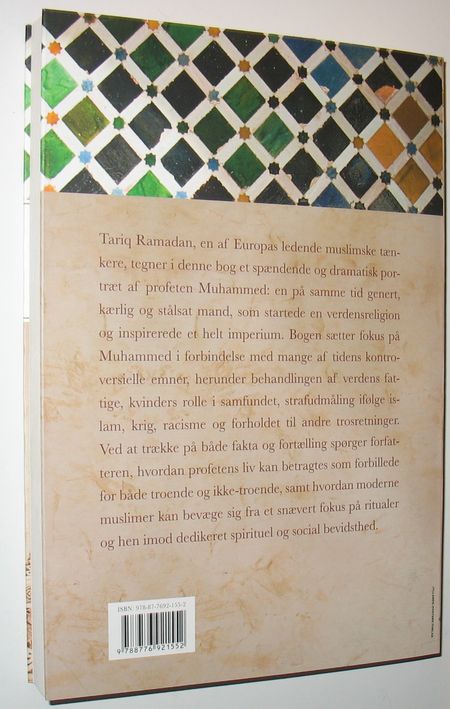 Tariq Ramadan, en af Europas ledende muslimske tæn-
kere, tegner i denne bog et spændende og dramatisk por-
træt af profeten Muhammed: en på samme tid genert,
kærlig og stålsat mand, som startede en verdensreligion
og inspirerede et helt imperium. Bogen sætter fokus på
Muhammed i forbindelse med mange af tidens kontro-
versielle emner, herunder behandlingen af verdens fat-
tige, kvinders rolle i samfundet, strafudmåling ifølge is-
lam, krig, racisme og forholdet til andre trosretninger.
Ved at trække på både fakta og fortælling spørger forfat-
teren, hvordan profetens liv kan betragtes som forbillede
for både troende og ikke-troende, samt hvordan moderne
muslimer kan bevæge sig fra et snævert fokus på ritualer
og hen imod dedikeret spirituel og social bevidsthed.
ISBN: 978-87-7692-155-2
9 788776 921552